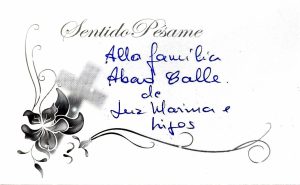 Sentido Pésame
A la familia
Abad Calle.
de
Luz Marina e
hijos